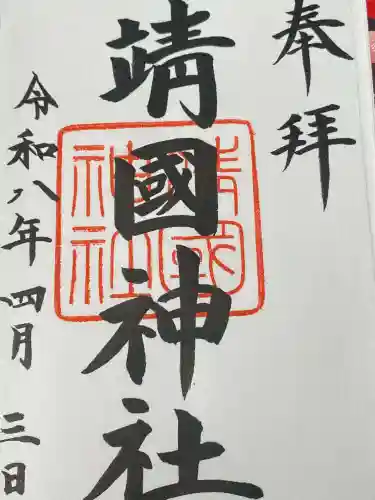 奉拝
靖國神社
靖國
神社
令和八年四月三日